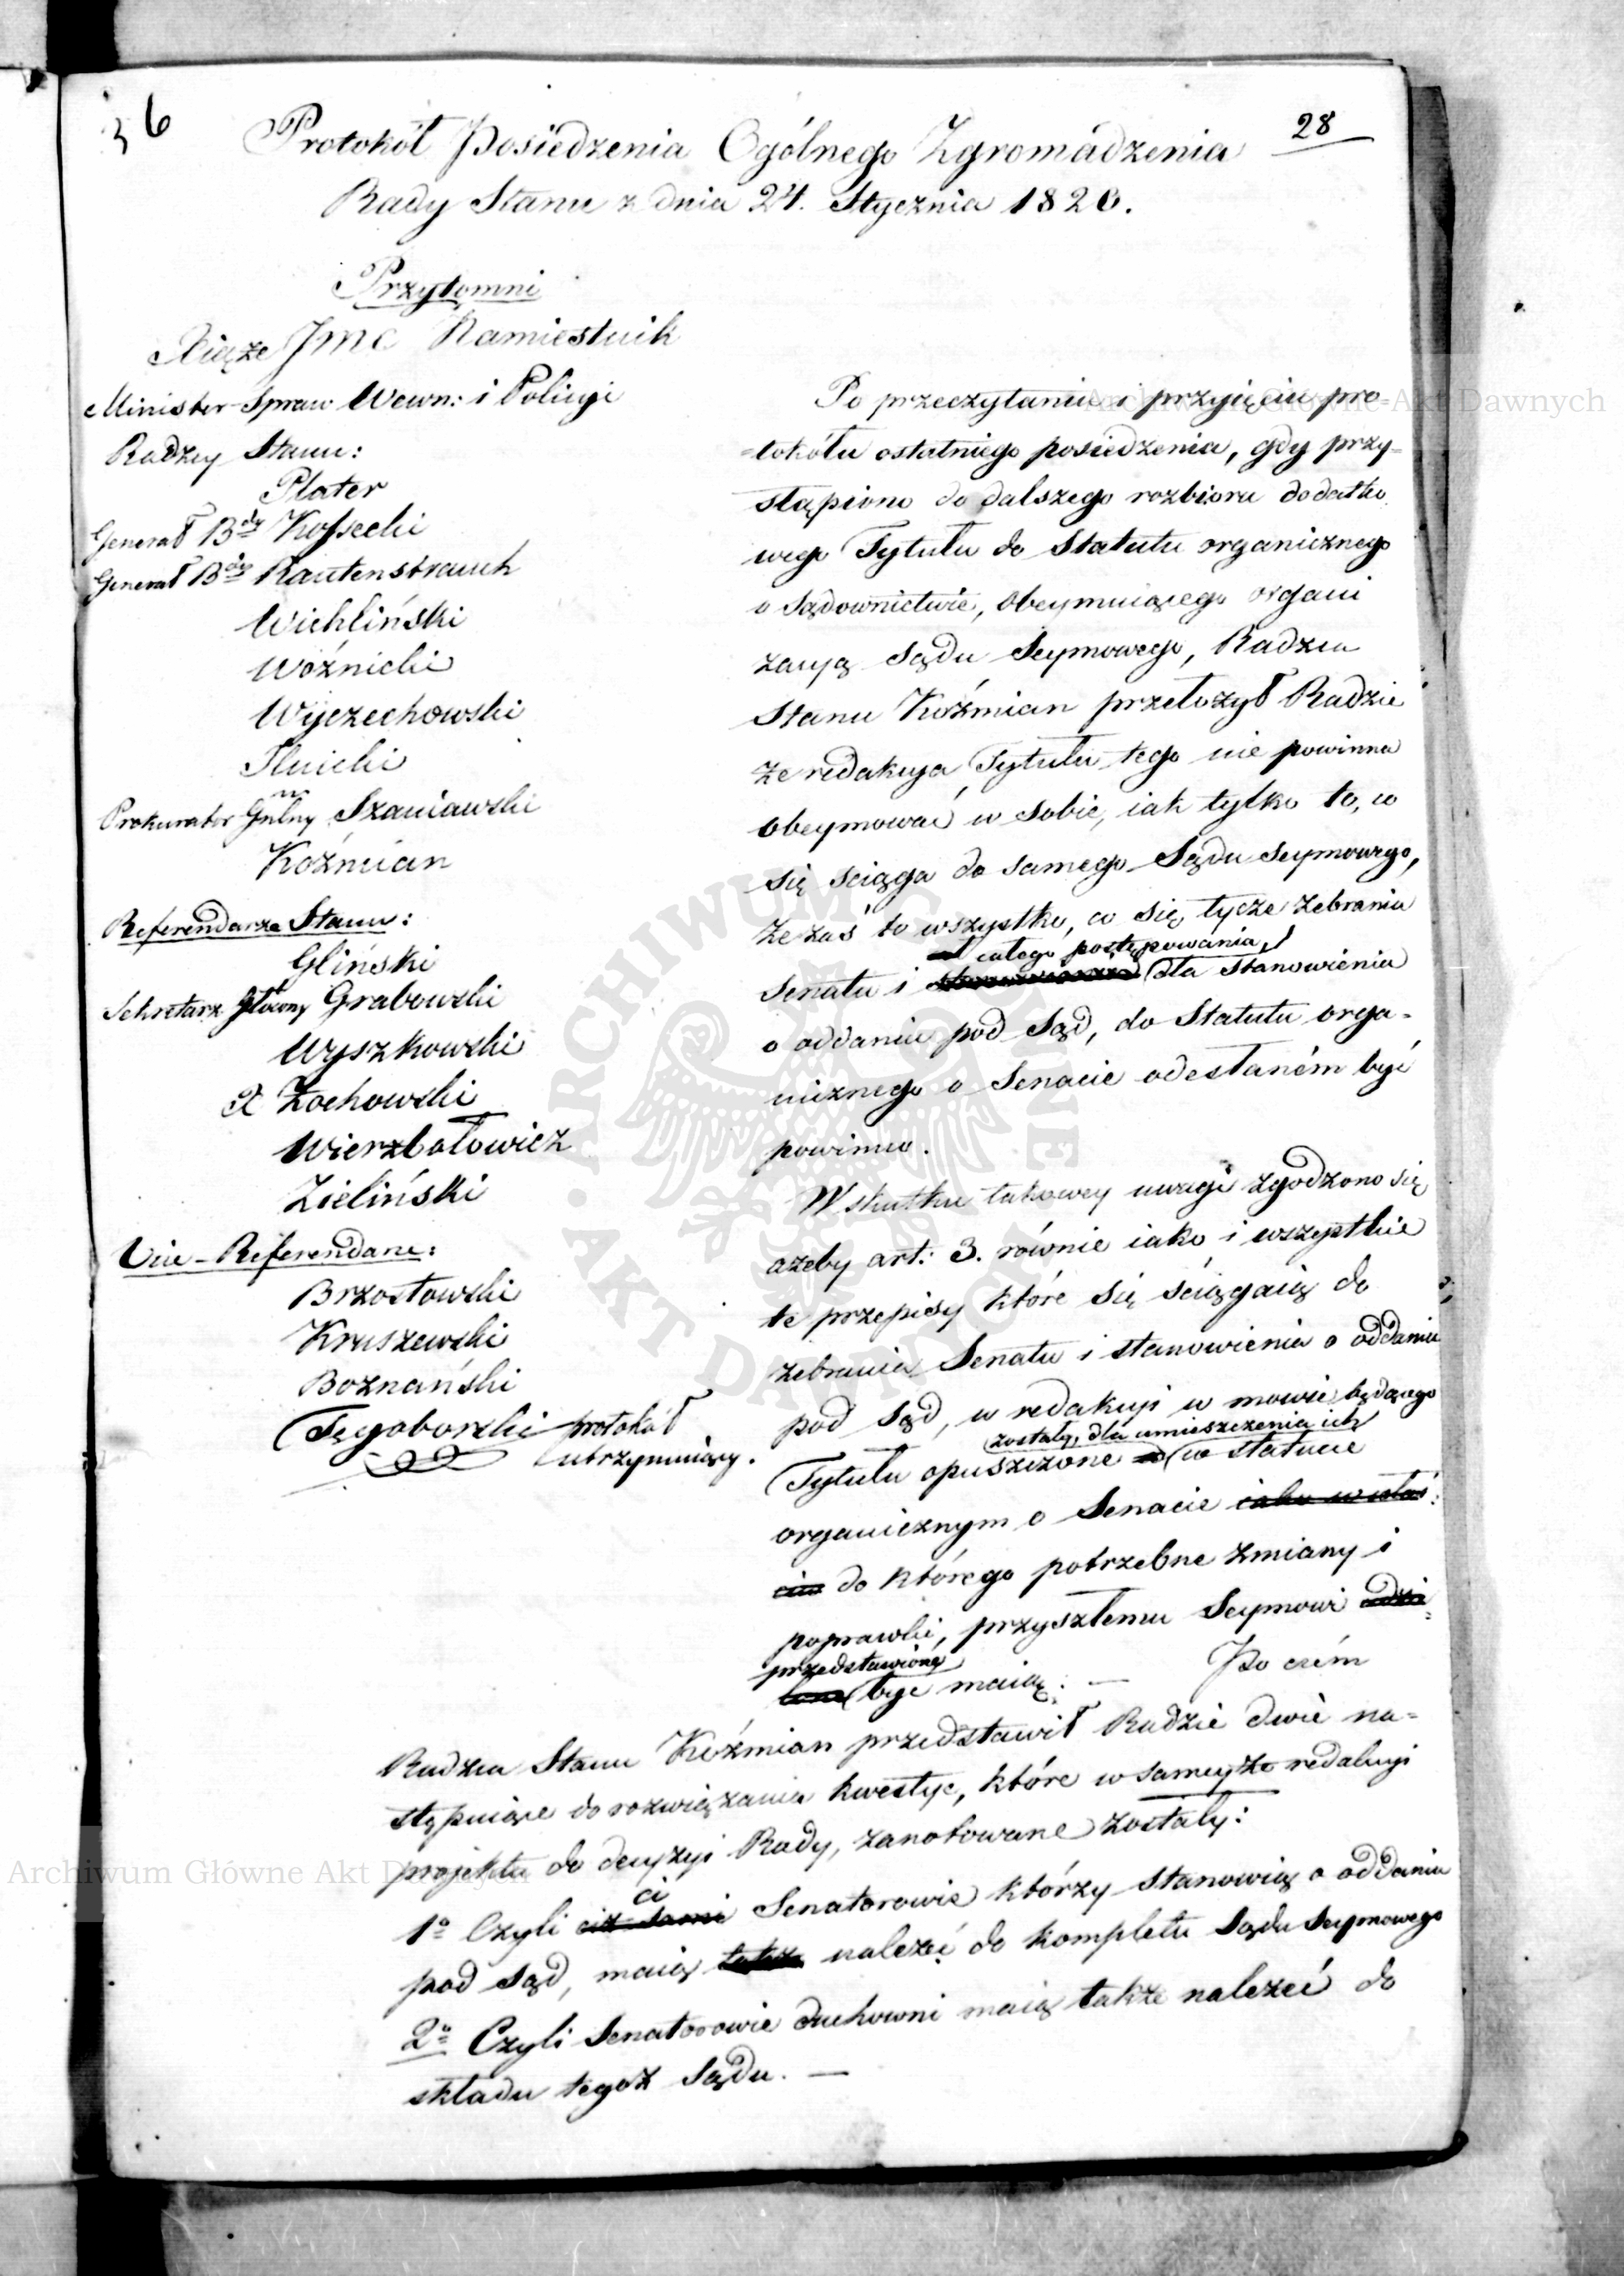 36
28
Protokół Posiedzenia Ogólnego Zgromadzenia
Rady Stanu z dnia 24. Stycznia 1820.
Przytomni
Xiąże JMC Namiestnik
Minister Spraw Wewn: i Policyi
Radzcy Stanu:
Plater
Generał Bdy Kossecki
Generał Bdy Rautenstrauch
Wichliński
Woźnicki
Wyczechowski
Prokurator Gnlny Szaniawski
Koźmian
Referendarze Stanu:
Gliński
Sekretarz Główny Grabowski
Wyszkowski
X Żochowski
Wierzbołowicz
Zieliński
Vice-Referendarze:
Brzostowski
Kruszewski
Boznański
Tęgoborski protokół
utrzymuiący.
Po przeczytaniu i przyięciu pro-
tokółu ostatniego posiedzenia, gdy przy-
stąpiono do dalszego rozbioru dodatko
wego Tytułu do Statutu organicznego
o Sądownictwie, obeymuiącego organi
zacyą Sądu Seymowego, Radzca
Stanu Koźmian przełożył Radzie
że redakcya Tytułu tego nie powinna
obeymować w sobie, iak tylko to, co
się sciąga do samego Sądu Seymowego,
że zaś to wszystko, co się tycze zebrania
całego postępowania
Senatu i dla stanowienia
o oddaniu pod Sąd, do Statutu orga-
nicznego o Senacie odesłaném być
powinno.
W skutku takowey uwagi zgodzono się
ażeby art: 3. równie iako i wszystkie
te przepisy które się ściągaią do
zebrania Senatu i stanowienia o oddaniu
pod Sąd, w redakcyi w mowie będącego
zostały, dla umieszczenia ich
Tytułu opuszczone w statucie
organicznym o Senacie iako właś-
ciw do którego potrzebne zmiany i
poprawki, przyszłemu Seymowi
przedstawione
być maią. — Po czém
Radzca Stanu Koźmian przedstawił Radzie dwie na-
stępuiące do rozwiązania kwestye, które w sameyże redakcyi
projektu do decyzyi Rady, zanotowane zostały:
ci
1o Czyli ciż sami Senatorowie którzy stanowią o oddaniu
pod Sąd, maią także należeć do kompletu Sądu Seymowego
2o Czyli Senatorowie duchowni maią także należeć do
składu tegoż Sądu. —
Archiwum Główne Akt Dawnych
Archiwum Główne Akt Dawnych
ARCHIWUM GŁÓWNE AKT DAWNYCH